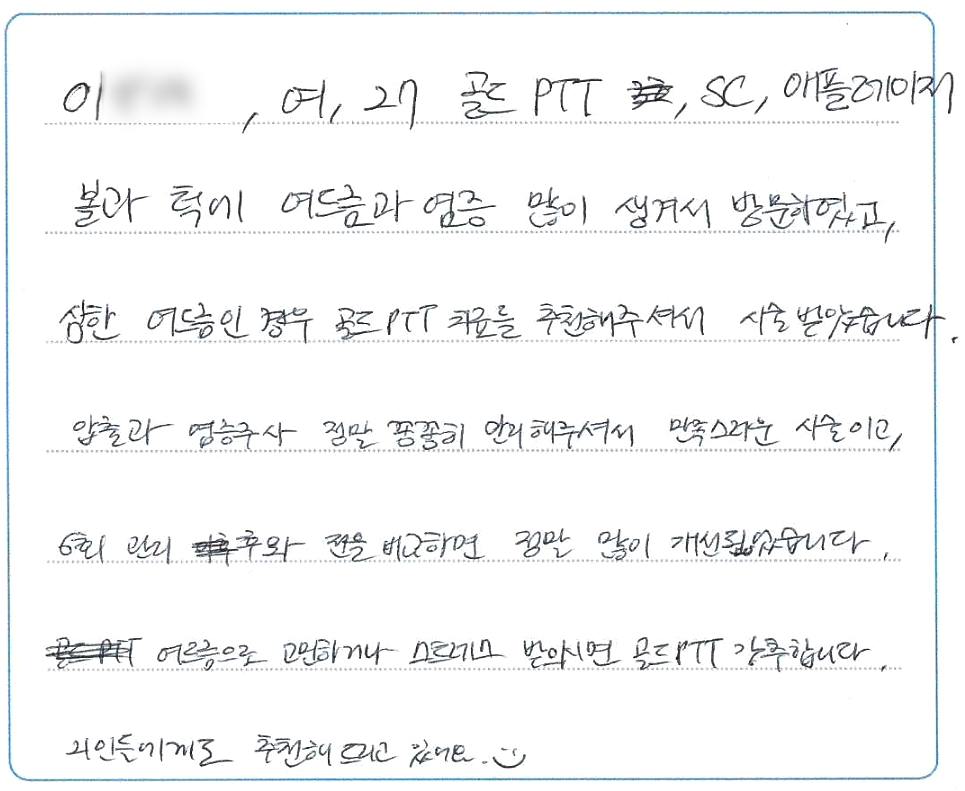 이 , 여, 27 골드 PTT , SC, 애플레이저
볼과 턱에 여드름과 염증 많이 생겨서 방문하였고,
심한 여드름인 경우 골드PTT 치료를 추천해주셔서 시술받았습니다.
압출과 염증주사 정말 꼼꼼히 관리해주셔서 만족스러운 시술이고,
6회 관리 후와 전을 비교하면 정말 많이 개선되었습니다.
여드름으로 고민하거나 스트레스 받으시면 골드PTT 강추합니다.
지인들에게도 추천해 드리고 있어요.